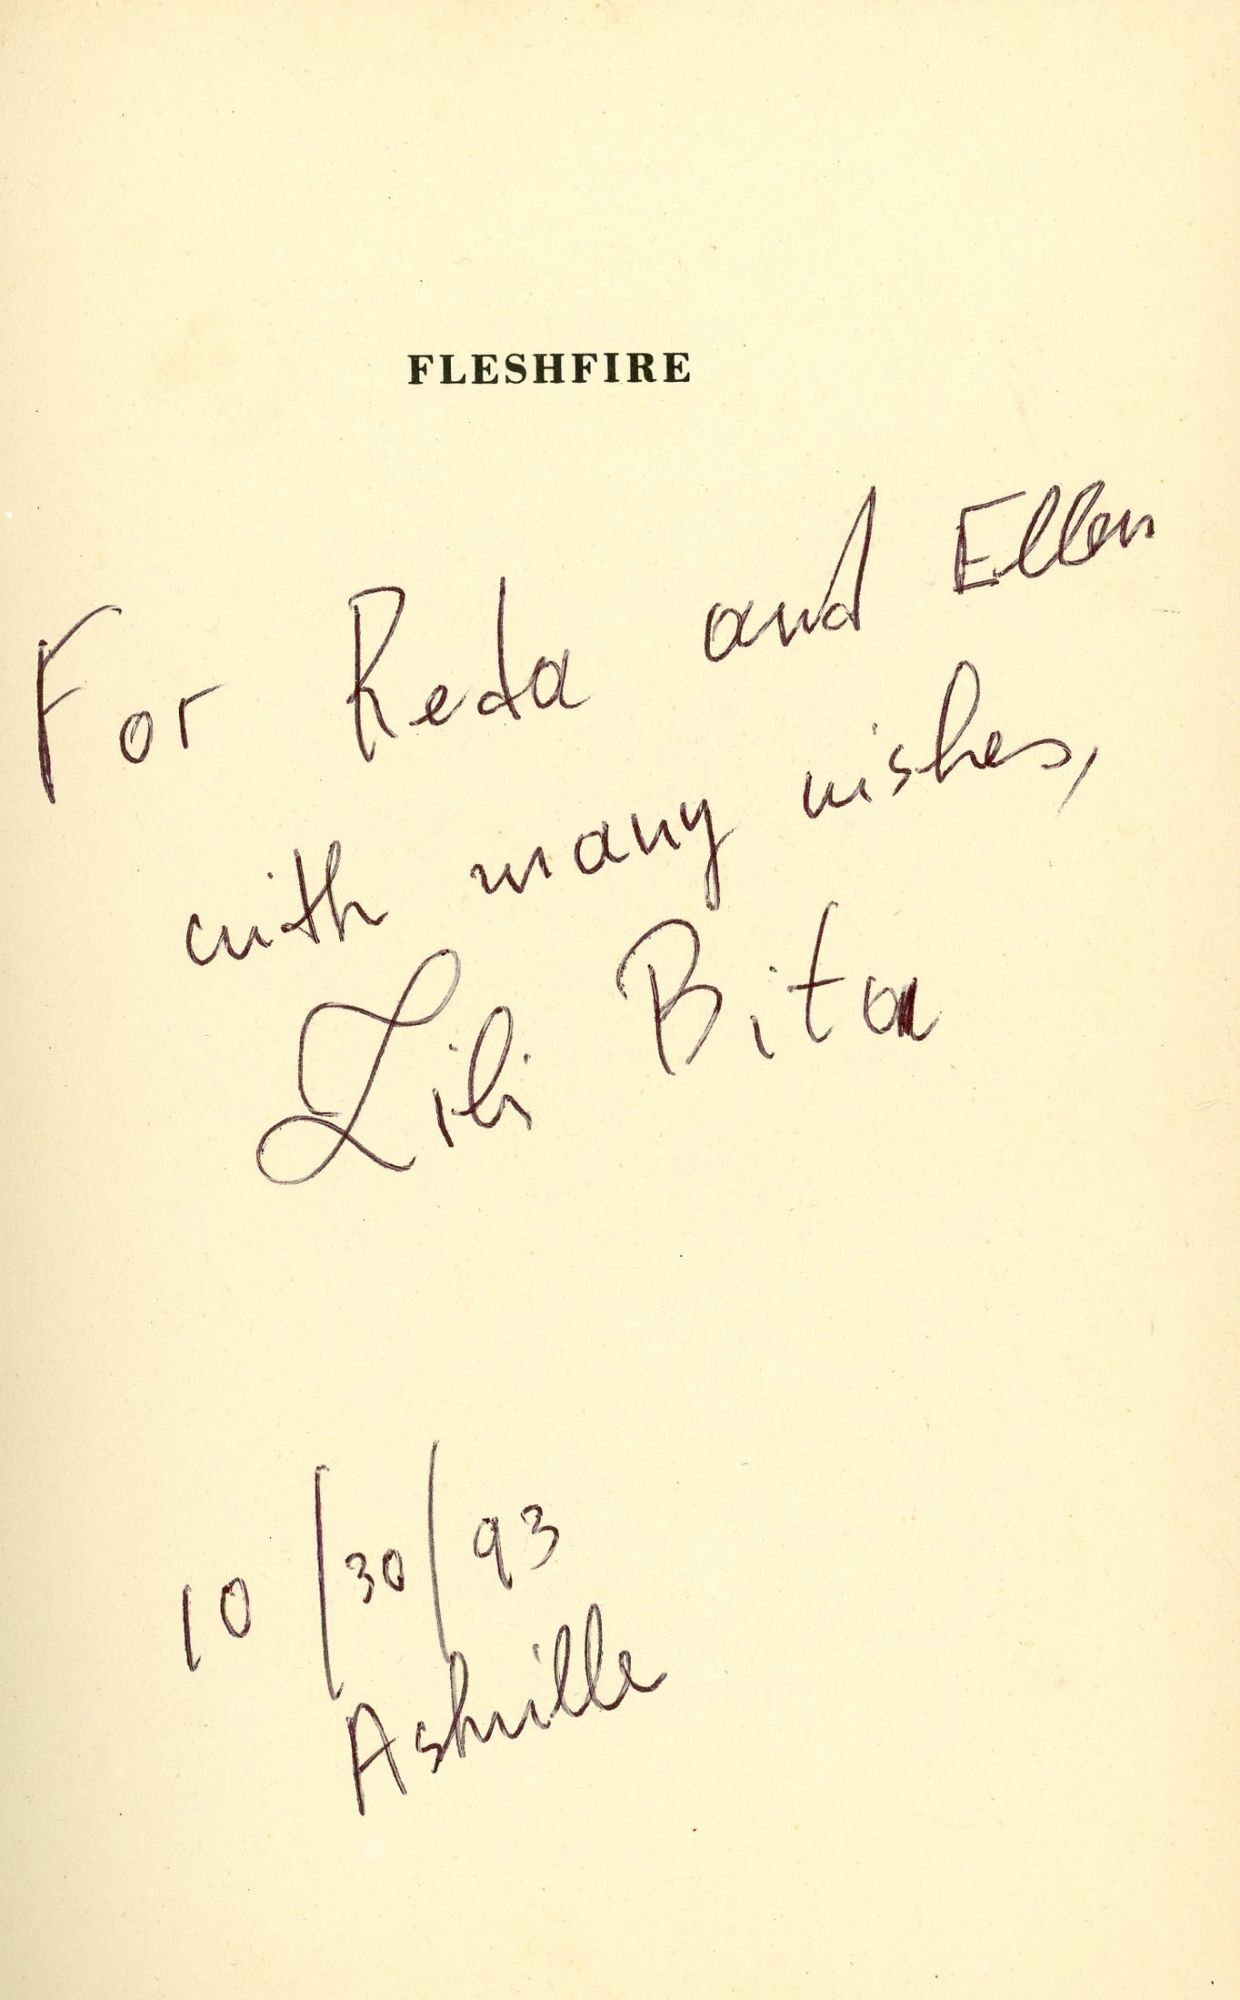 FLESHFIRE
For Reda and Ellen
with many wishes,
Lili Bita
10/30/93
Ashville